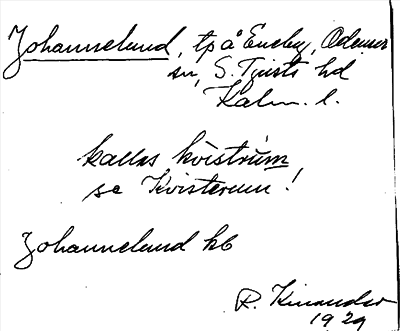 Johannelund, tp å Eneby, Odensvi
sn, S. Tjusts hd
Kalm. l.
kallas kvistrum
se Kvisterum!
Johannelund kb
R. Kinander
1929